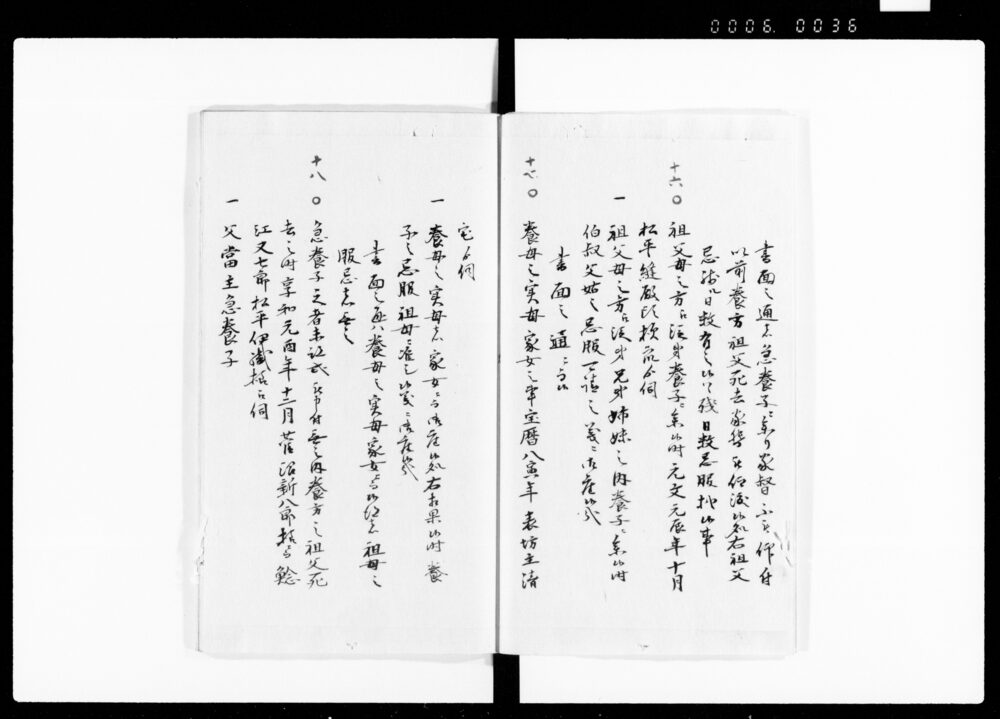 0006. 0036
書面之通者急養子ニ参り家督不被仰付
以前養方祖父死去家督被仰渡候ハ右祖父
忌掛候日数有之候ハヽ残日数忌服授候事
十六〇 祖父母之方江従弟養子ニ参候時元文元辰年十月
松平縫殿頭様衆ゟ伺
一 祖父母之方江従弟兄弟姉妹之内養子ニ参候時
伯叔父姑之忌服可請之義ニ御座候哉
書面之通ニ而候
十七〇 養母之実母家女之事宝暦八寅年表坊主清
宅ゟ伺
一 養母之実母者家女ニ而御座候処右相果候時養
子之忌服祖母ニ准之候義ニ御座候哉
書面之通ハ養母之実母家女ニ而候得者祖母之
服忌者無之
十八〇 急養子之者未証武被仰付無之内養方之祖父死
去之時享和元酉年十二月菅沼新八郎様ゟ鯰
江又七郎松平伊織様江伺
一 父當主急養子